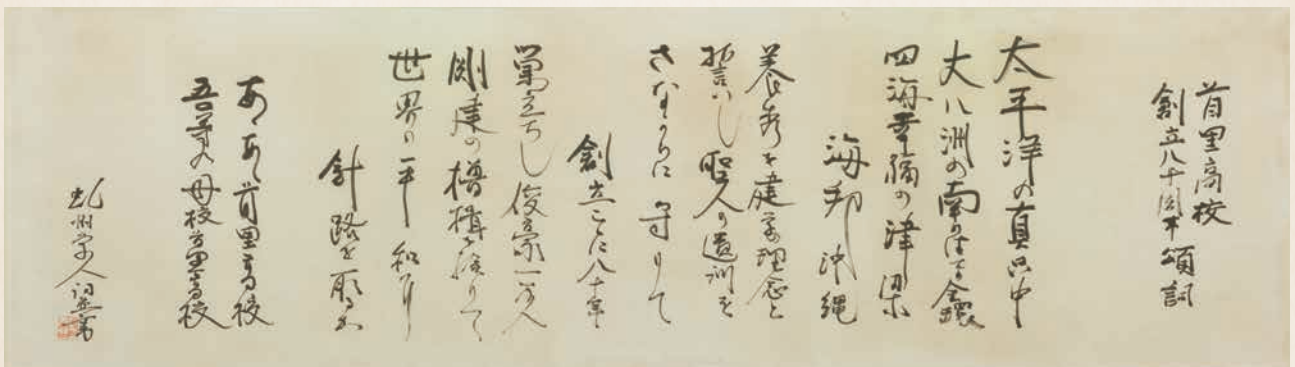 首里高校
創立八十周年頌詞
太平洋の真只中
大八洲の南の
四海幸福の津梁
海邦沖縄
養秀を建学理念と
誓いし聖人の遺訓を
さながらに守りて
創立ここに八十年
巣立ちし俊豪一万人
剛建の櫓楫を操りて
世界の平和
針路を
あゝあゝ首里高校
吾等の母校首里高校